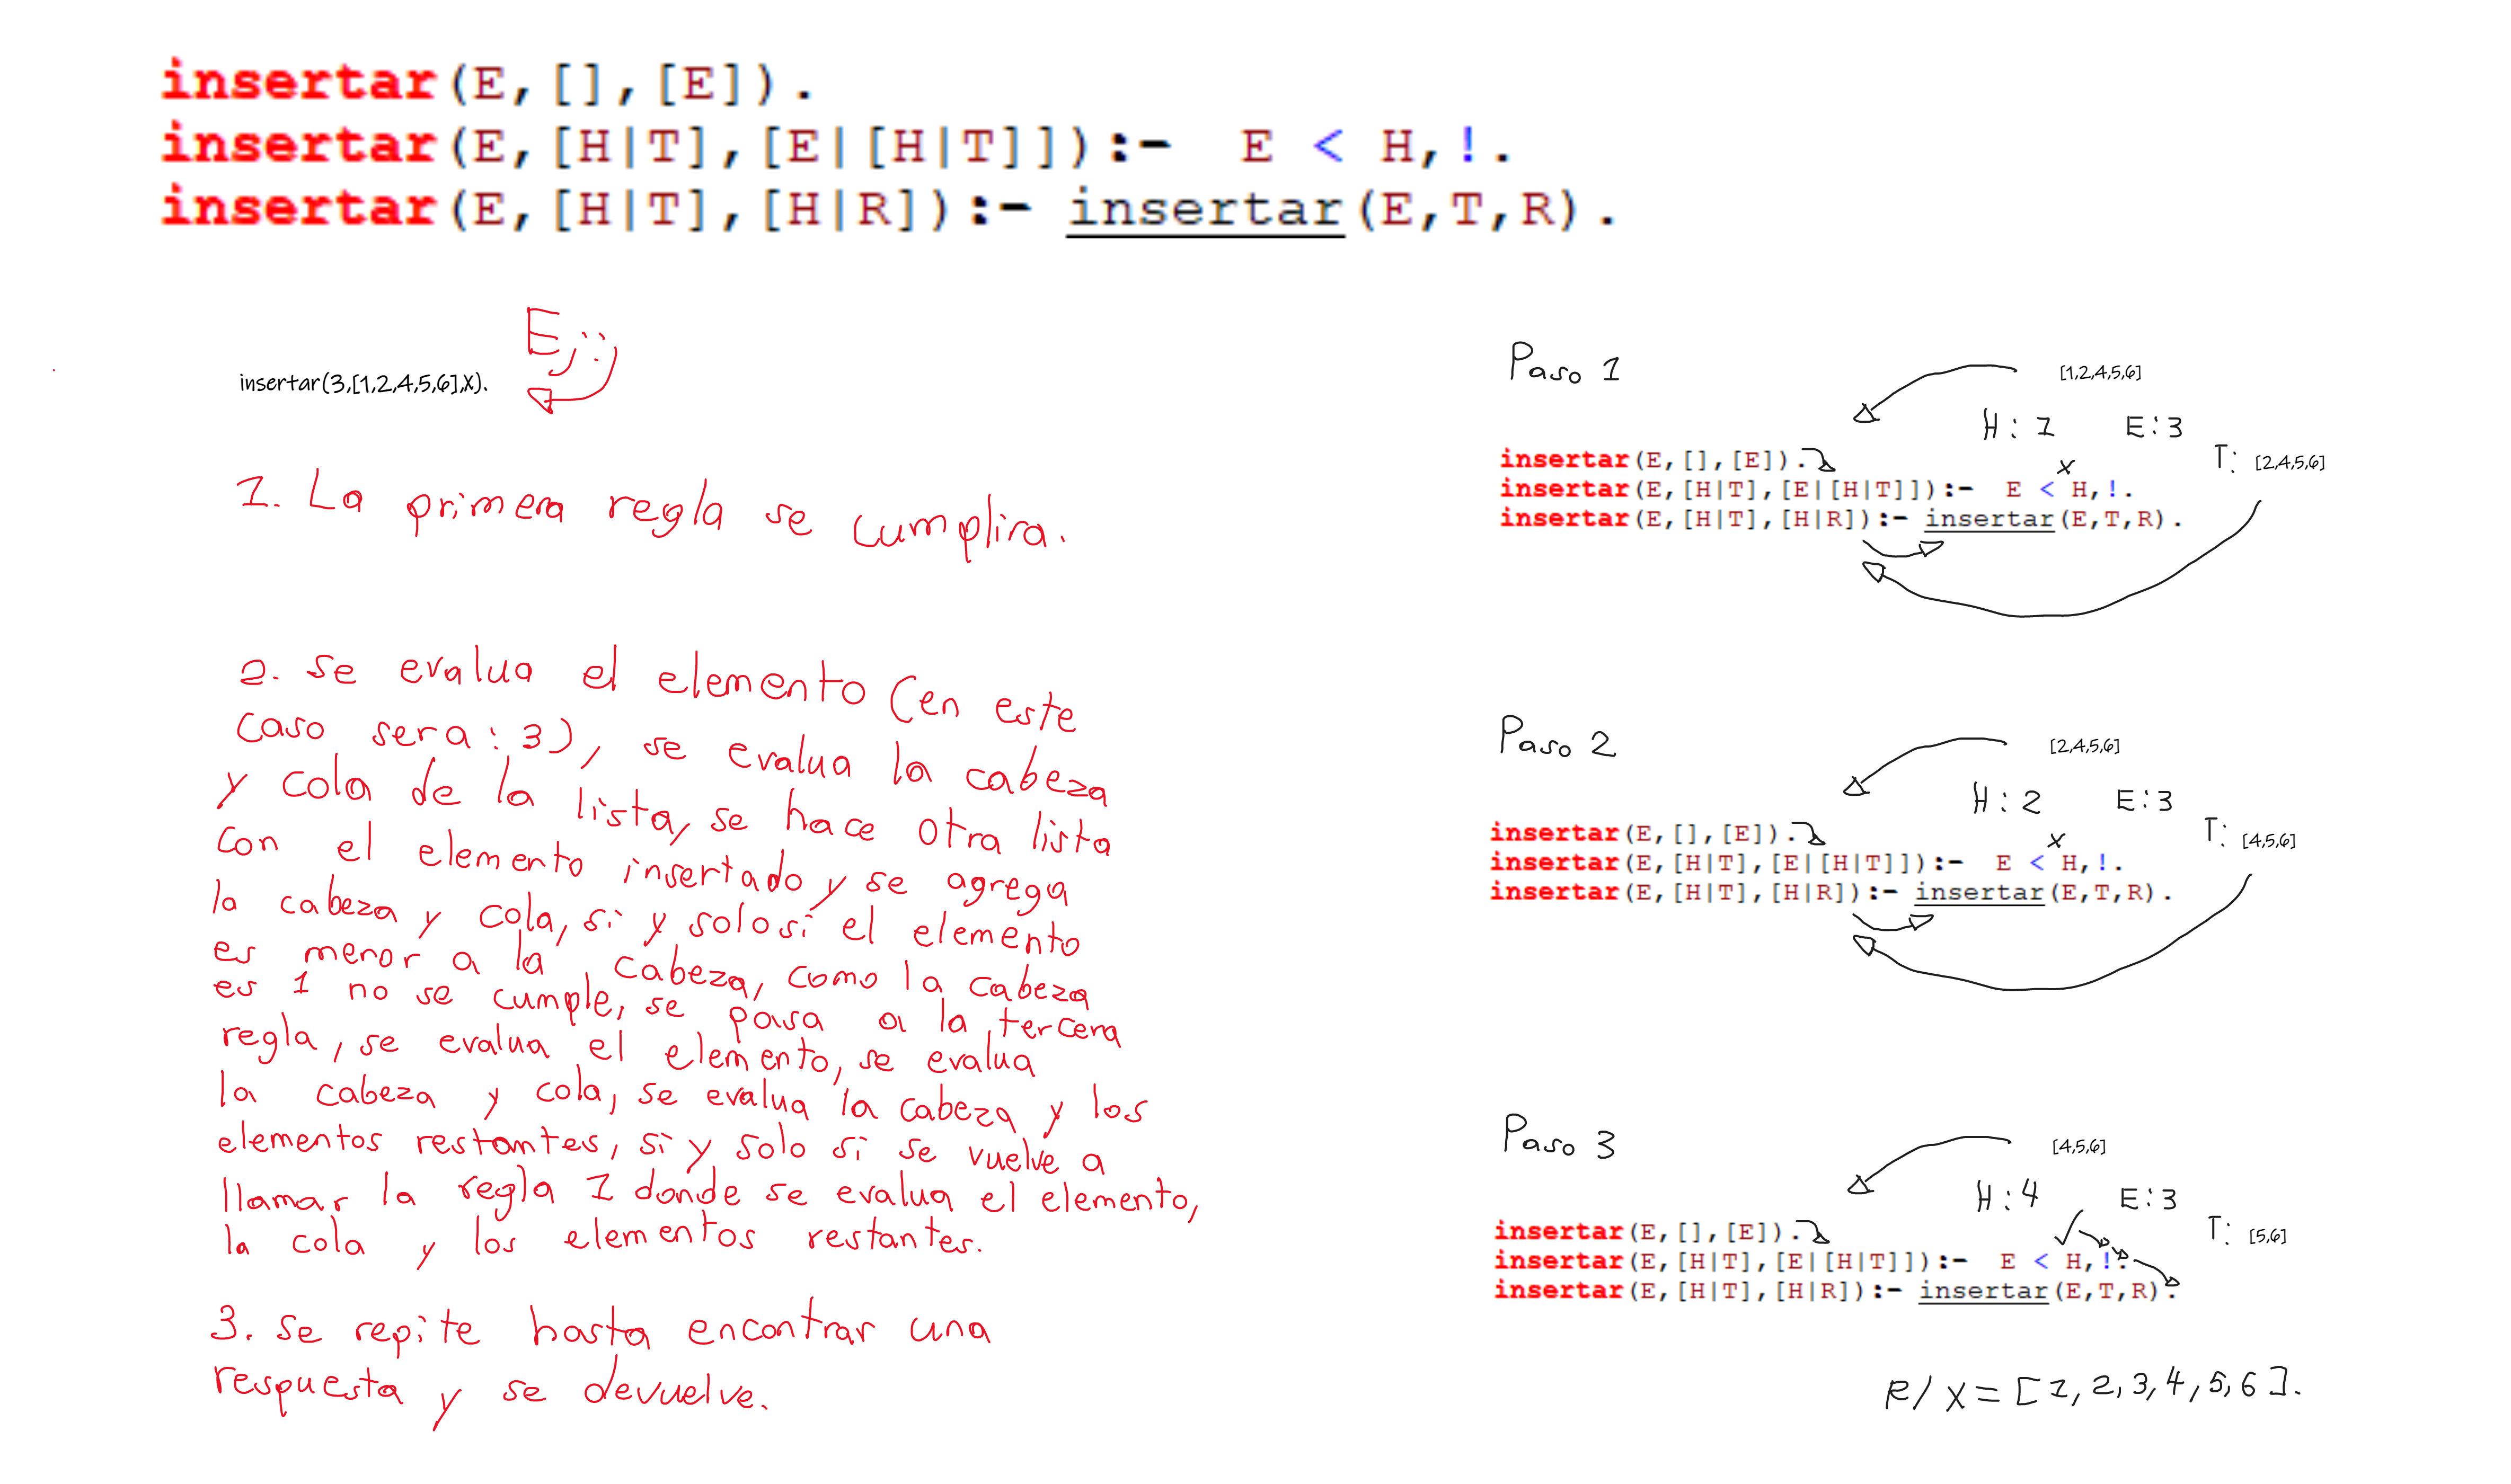 insertar(E,[],[E]).
insertar(E,[H|T],[E|[H|T]]):- E < H,!.
insertar(E,[H|T],[H|R]):- insertar(E,T,R).
Ej:
insertar(3,[1,2,4,5,6],X).
1. La primera regla se cumplira.
2. Se evalua el elemento (en este
caso sera: 3), se evalua la cabeza
y cola de la lista, se hace otra lista
con el elemento insertado y se agrega
la cabeza y cola, si y solo si el elemento
es menor a la cabeza, como la cabeza
es 1 no se cumple, se pasa a la tercera
regla, se evalua el elemento, se evalua
la cabeza y cola, se evalua la cabeza y los
elementos restantes, si y solo si se vuelve a
llamar la regla 1 donde se evalua el elemento,
la cola y los elementos restantes.
3. Se repite hasta encontrar una
respuesta y se devuelve.
Paso 1
[1,2,4,5,6]
H: 1 E:3
T: [2,4,5,6]
x
insertar(E,[],[E]).
insertar(E,[H|T],[E|[H|T]]):- E < H,!.
insertar(E,[H|T],[H|R]):- insertar(E,T,R).
Paso 2
[2,4,5,6]
H: 2 E:3
T: [4,5,6]
x
insertar(E,[],[E]).
insertar(E,[H|T],[E|[H|T]]):- E < H,!.
insertar(E,[H|T],[H|R]):- insertar(E,T,R).
Paso 3
[4,5,6]
H: 4 E:3
T: [5,6]
insertar(E,[],[E]).
insertar(E,[H|T],[E|[H|T]]):- E < H,!.
insertar(E,[H|T],[H|R]):- insertar(E,T,R).
R/ X = [1,2,3,4,5,6].